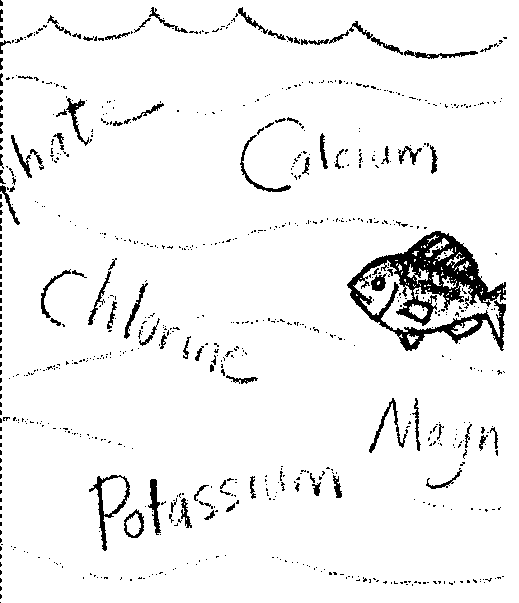 phate
Calcium
Chlorine
Magn
Potassium